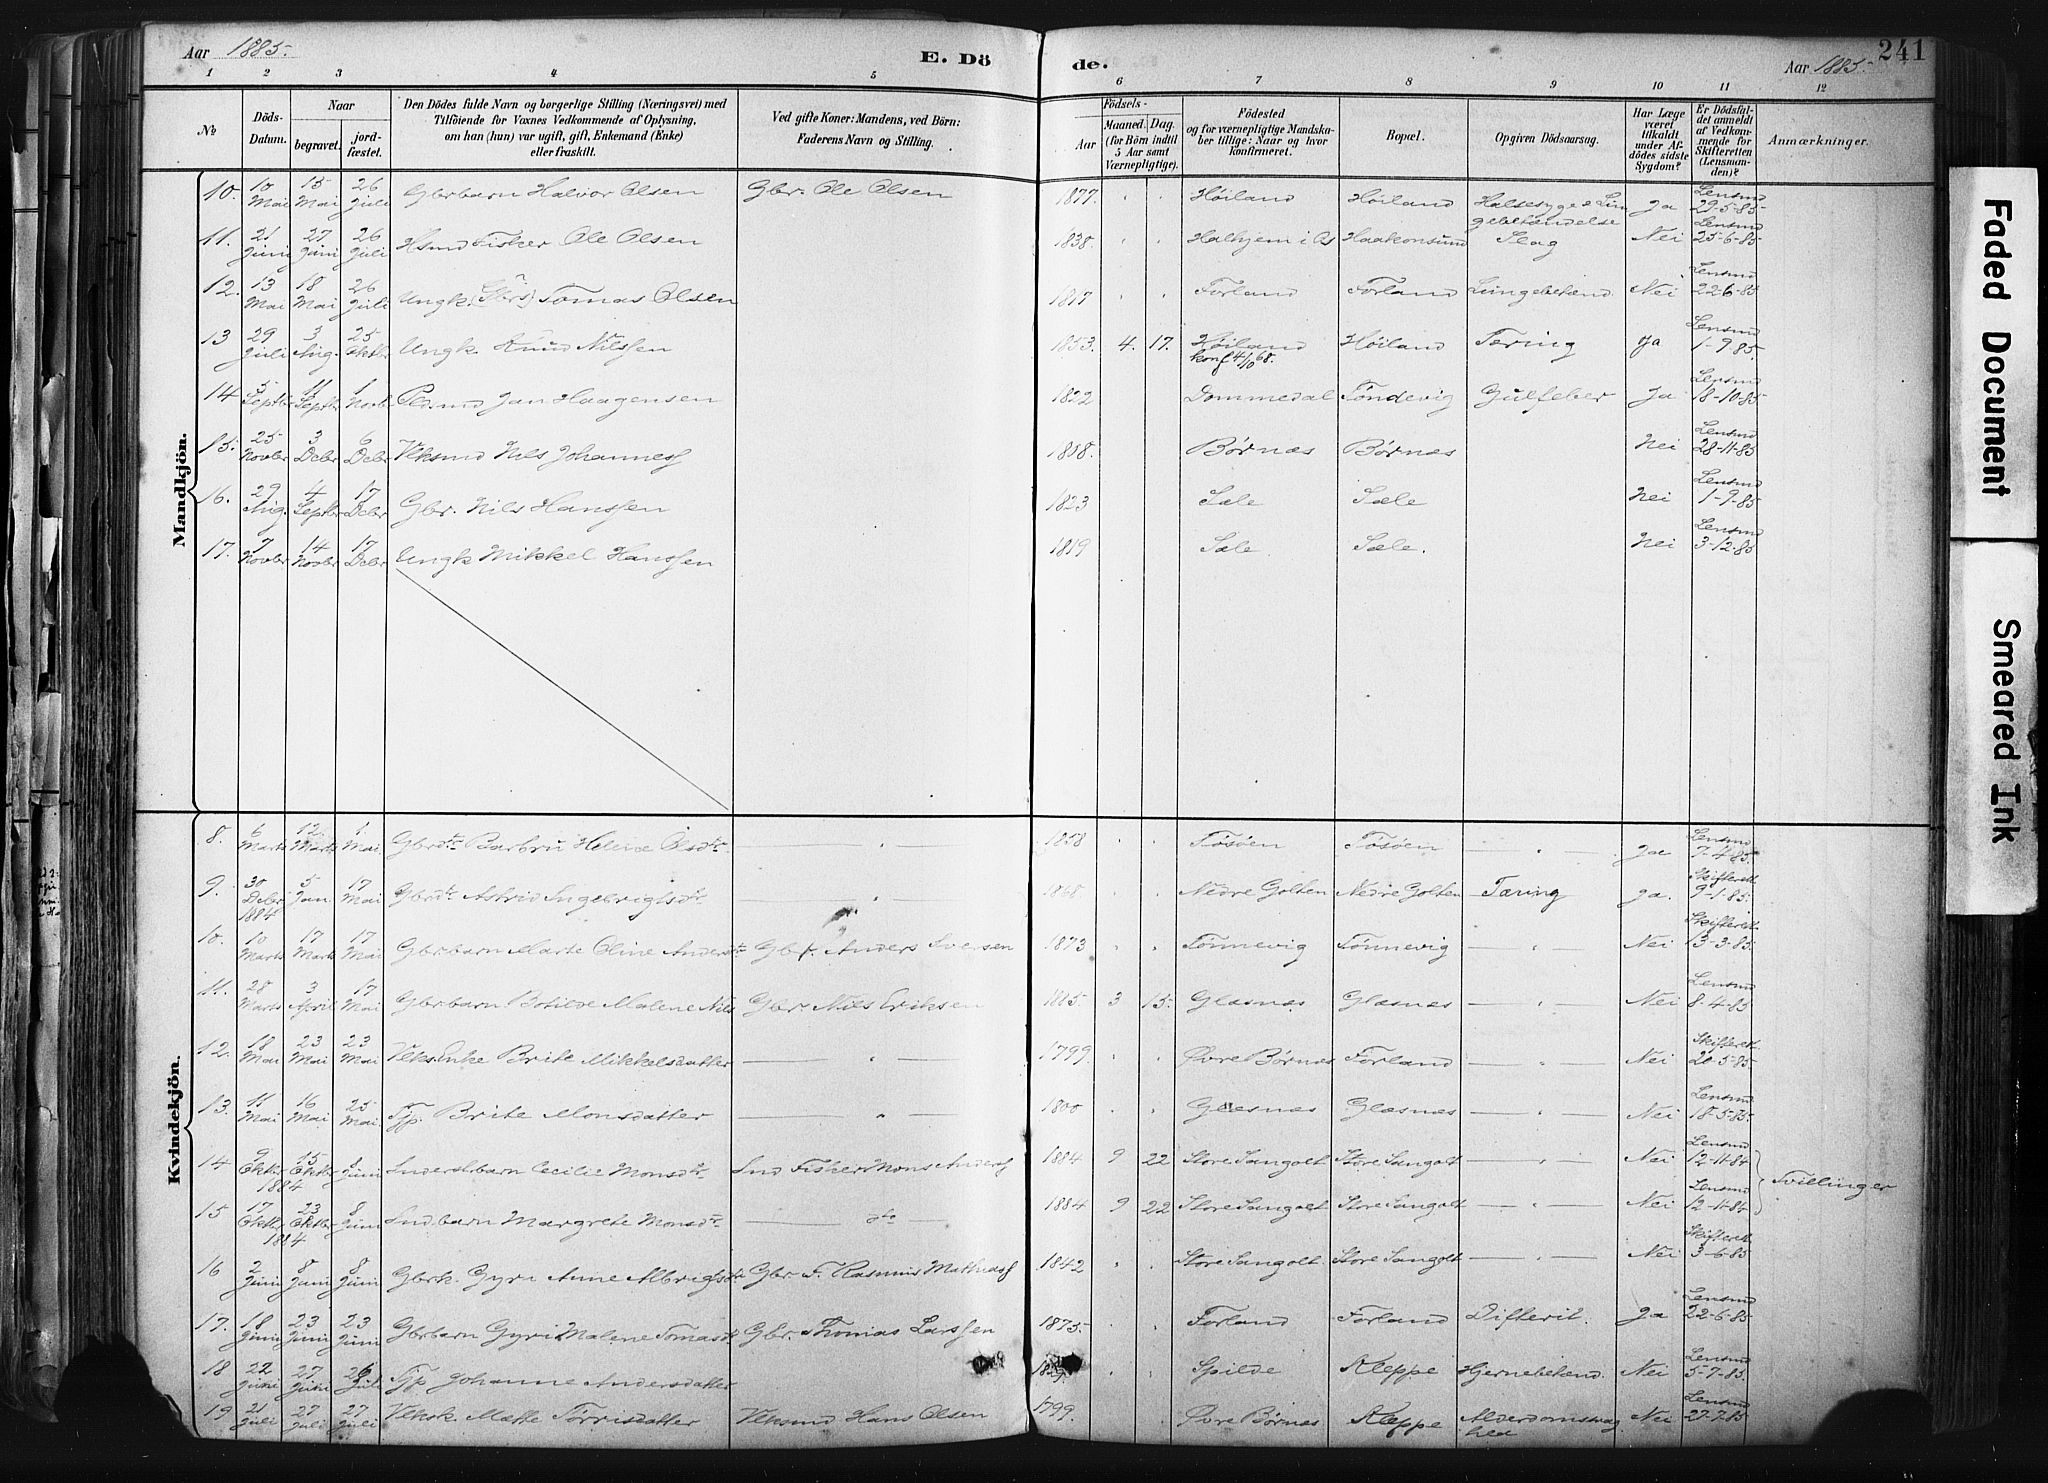 Aar 1885. E. Döde. Aar 1885. 241
1 2 3 4 5 6 7 8 9 10 11 12
№ Döds-Datum. Naar begravet. jord-fæstet. Den Dödes fulde Navn og borgerlige Stilling (Næringsvei) med Tilföiende for Voxnes Vedkommende af Oplysning, om han (hun) var ugift, gift, Enkemand (Enke) eller fraskilt. Ved gifte Koner: Mandens, ved Börn: Faderens Navn og Stilling. Födsels- Aar Maaned. Dag. (for Börn indtil 5 Aar samt Værnepligtige). Födested og for værnepligtige Mandskaber tillige: Naar og hvor Konfirmeret. Bopæl. Opgiven Dödsaarsag. Har Læge været tilkaldt under Afdödes sidste Sygdom? Er Dödsfaldet anmeldt af Vedkommende for Skifteretten (Lensmanden)? Anmærkninger.
Mandkjön.
10. 10 Mai 15 Mai 26 Juli Gbrbarn Halvor Olsen Gbr. Ole Olsen 1877. " " Høiland Høiland Halsesyge & Lungebetændelse Ja Lensmd 29-5-85.
11. 21 Juni 27 Juni 26 Juli Hsmd Fisker Ole Olsen 1838. " " Halhjem i Os Haakonsund Slag Nei Lensmd 25-6-85
12. 13 Mai 18 Mai 26 Juli Ungk. Tomas Olsen 1817 " " Forland Forland Lungebetænd. Nei Lensmd 22-6-85
13 29 Juli 3 Aug. 25 Oktbr Ungk Knud Nilssen 1853. 4. 17. Høiland konf 4/10 68. Høiland Tæring Ja Lensmd 1-9-85.
14 5 Septbr 11 Septbr 1 Novbr Pldsmd Jan Haagensen 1822 Dommedal Tøndevig Gulfeber Ja Lensmd 18-10-85
15. 25 Novbr 3 Debr 6 Debr Vlksmd Nils Johanness 1808. Børnæs Børnæs Nei Lensmd 28-11-85
16. 29 Aug. 4 Septbr 17 Debr Gbr. Nils Hanssen 1823 Sæle Sæle Nei Lensmd 1-9-85
17. 7 Novbr 14 Novbr 17 Debr Ungk Mikkel Hanssen 1819 Sæle Sæle. Nei Lensmd 3-12-85
Kvindekjön.
8. 6 Marts 12 Marts 1. Mai Gbrdtr Barbru Helene Olsdtr — " — 1858 " " Tøsøen Tøsøen — " — Ja Lensmd 7-4-85.
9. 30 Debr 1884 5 Jan. 17 Mai Gbrdtr Astrid Ingebrigtsdtr — " — 1868 " " Nedre Golten Nedre Golten Tæring Ja. Skifterett 9-1-85.
10. 10 Marts 17 Marts 17 Mai Gbrbarn Marte Oline Andersdtr Gbr. Anders Iversen 1873 " " Tønnevig Tønnevig — " — Nei Skifterett. 13-3-85.
11. 28 Marts 3 April 17 Mai Gbrbarn Botilde Malene Nils Gbr. Nils Eriksen 1885. 3 15. Glæsnæs Glæsnæs — " — Nei Lensmd 8-4-85
12. 18 Mai 23 Mai 23 Mai Vlks.Enke Brite Mikkelsdatter — " — 1799. " " Øvre Børnæs Forland — " — Nei Skifterett. 20-5-85
13. 11 Mai 16 Mai 25 Mai Tjp. Brite Monsdatter — " — 1800 " " Glæsnæs Glæsnæs — " — Nei Lensmd 18-5-85.
14 9 Oktbr 1884 15 Oktbr 8 Juni Inderstbarn Cecilie Monsdtr Ind Fisker Mons Anderss 1884 9 22 Store Sangolt Store Sangolt — " — Nei Lensmd 12-11-84 Tvillinger
15 17 Oktbr 1884 23 Oktbr 8 Juni Ind.barn Margrete Monsdtr. — dto — 1884 9 22 Store Sangolt Store Sangolt — " — Nei Lensmd 12-11-84
16 2 Juni 8 Juni 8 Juni Gbrk. Gyri Anne Albrigtsdtr Gbr. F. Rasmus Mathiass 1842 " " Store Sangolt. Store Sangolt — " — Nei Skifterett 3-6-85
17. 18 Juni 23 Juni 23 Juni Gbrbarn Gyri Malene Tomasdtr Gbr. Thomas Larssen 1875. " " Forland Forland Difterit. Ja Lensmd 22-6-85
18 22 Juni 27 Juni 26 Juli Tjp Johanne Andersdatter " " Spilde Kleppe Hjernebetænd. Nei Lensmd 5-7-85.
19 21 Juli 27 Juli 27 Juli Vlksk. Mætte Tørrisdatter Vlksmd Hans Olsen 1799. Øvre Børnæs Kleppe Alderdomssvaghed Nei Lensmd 27-7-85
Faded Document
Smeared Ink